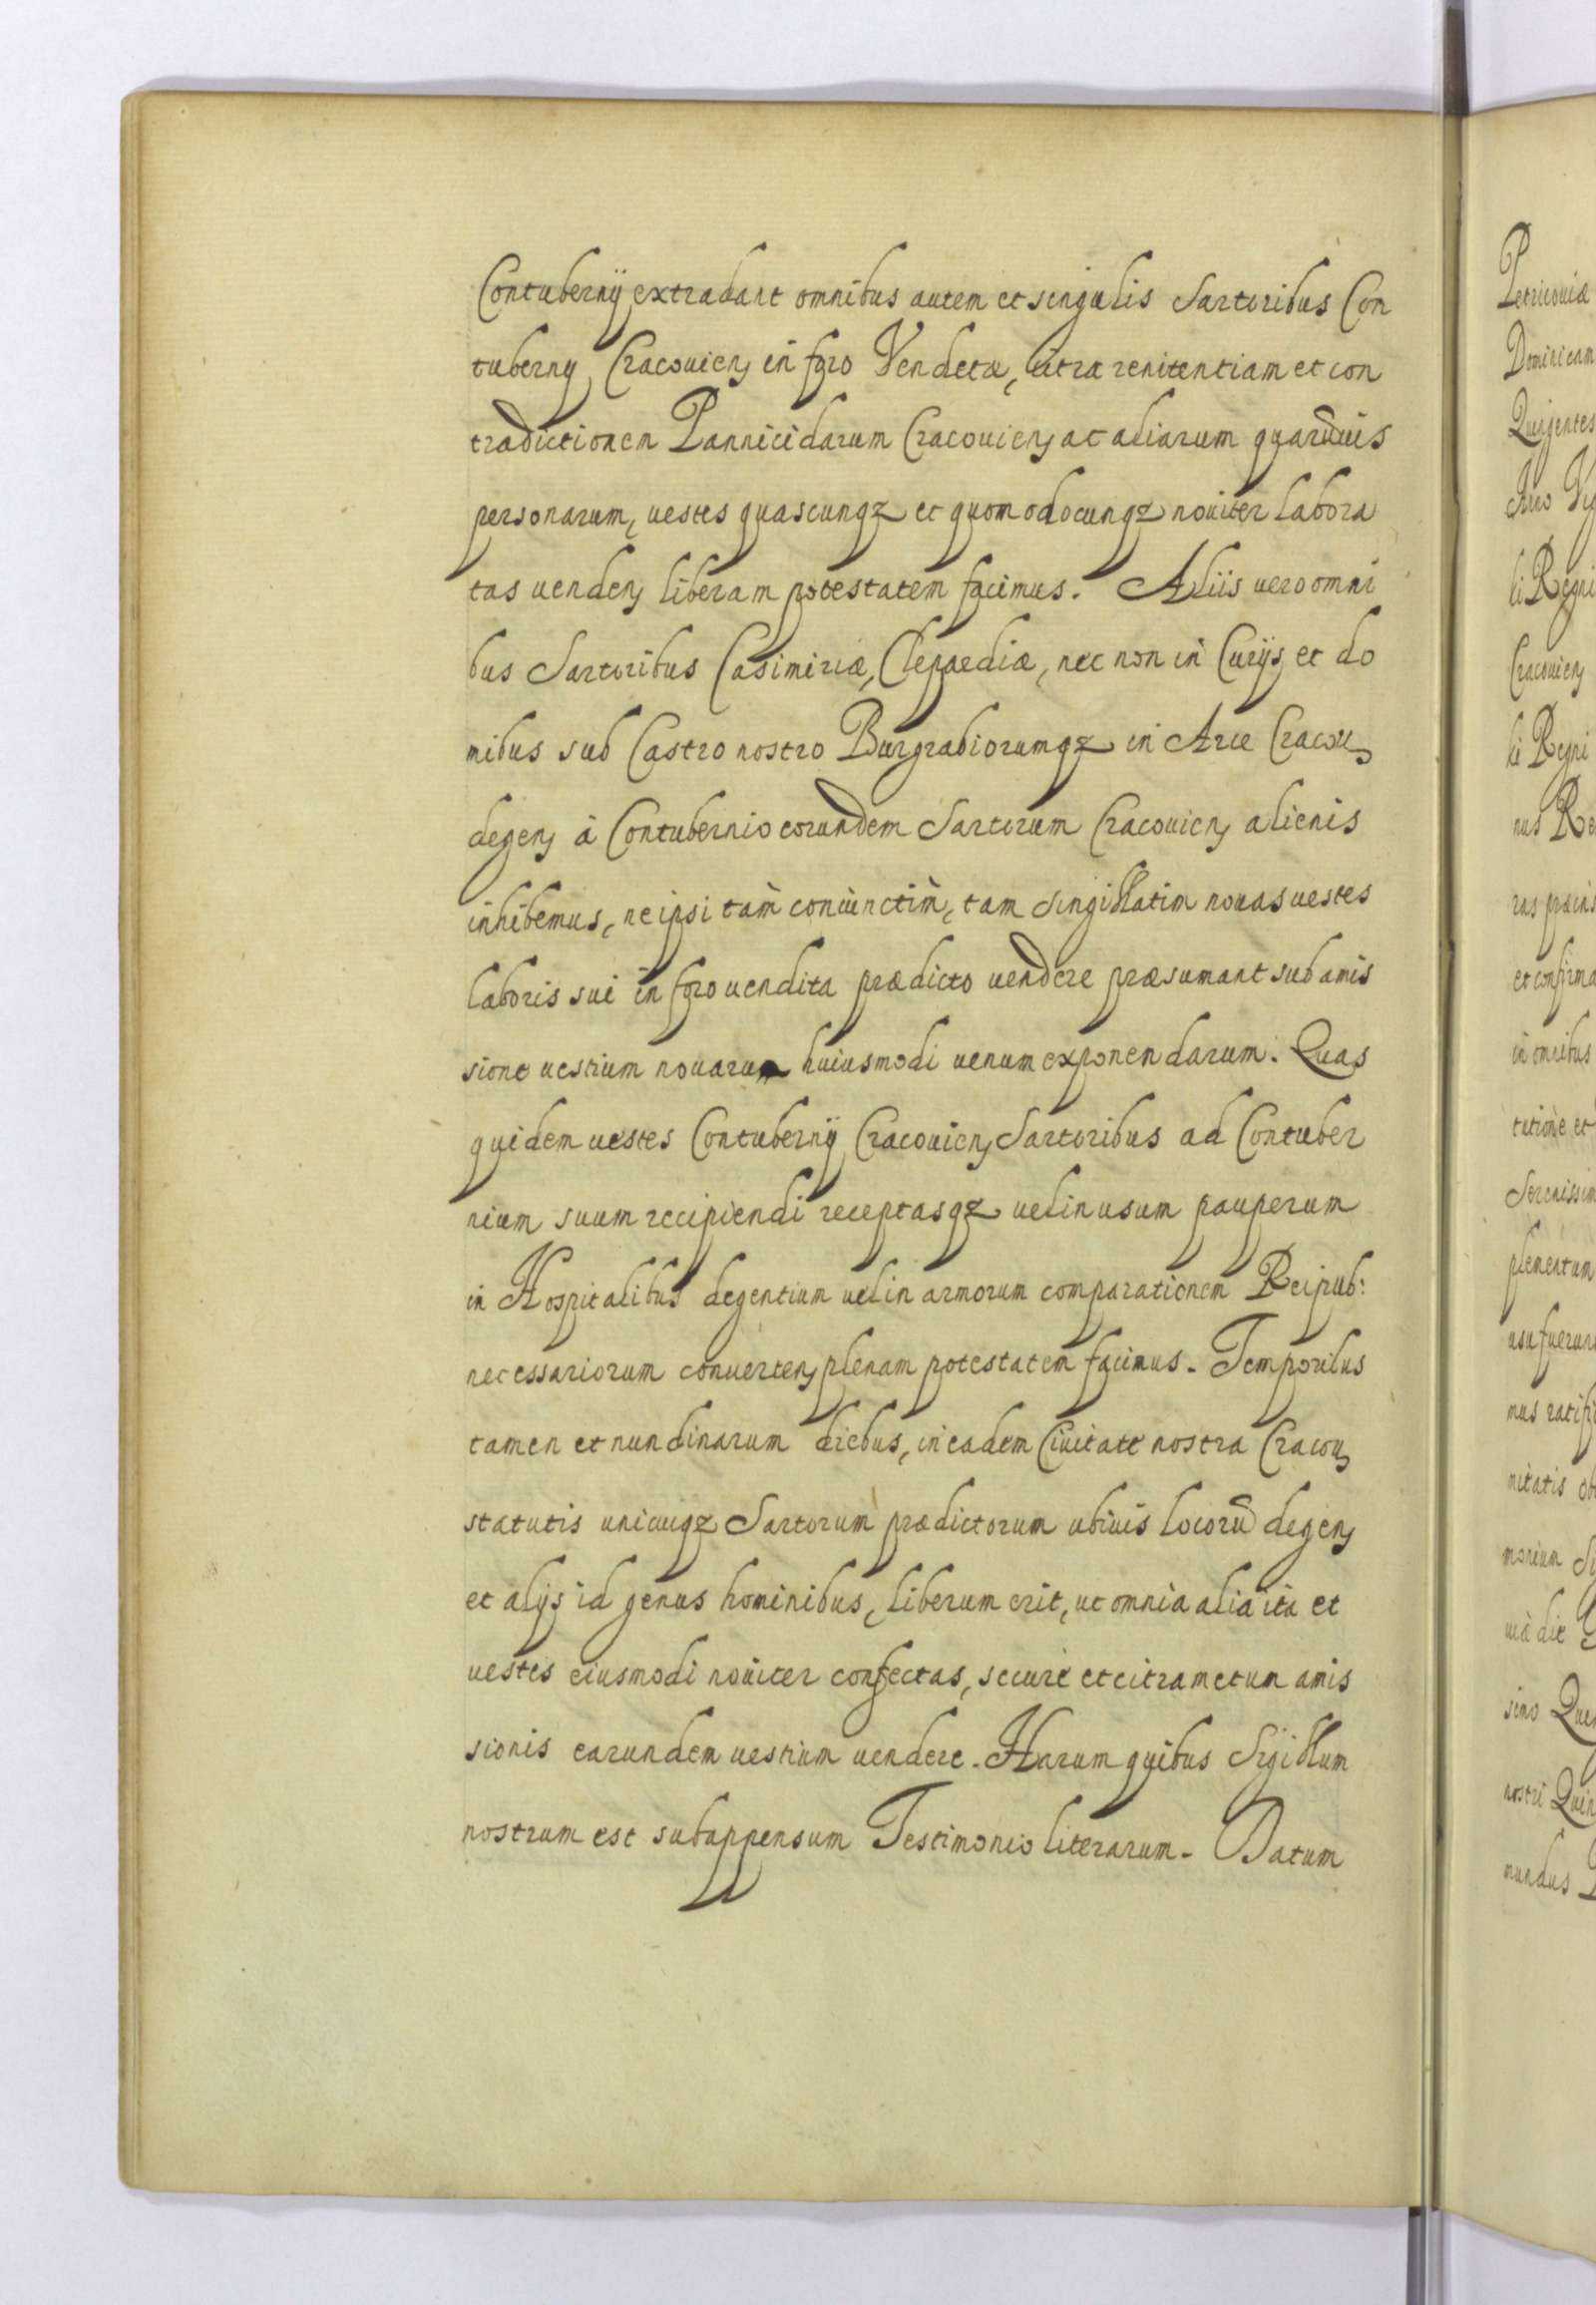 Contubernÿ extradant omnibus autem et singulis Sartoribus Con
tuberny Cracouien in foro Vendetæ, citra renitentiam et con
tradictionem Pannicidarum Cracouien ac aliarum quarũuis
personarum, uestes quascunqz et quomodocunqz nouiter labora
tas uenden liberam potestatem facimus. Aliis uero omni
bus Sartoribus Casimiriæ, Clepaediæ, nec non in Curijs et do
mibus sub Castro nostro Burgrabiorumqz in Arce Cracou
degen à Contubernio eorundem Sartorum Cracouien alienis
inhibemus, ne ipsi tam̀ coniunctim̀, tam singillatim nouas uestes
laboris sui in foro uendita prædicto uendere præsumant sub amis
sione uestium nouarum huiusmodi uenum exponendarum. Quas
quidem uestes Contubernÿ Cracouien Sartoribus ad Contuber
nium suum recipiendi receptasqz uel in usum pauperum
in Hospitalibus degentium uel in armorum comparationem Reipub:
necessariorum conuerten plenam potestatem facimus. Temporibus
tamen et nundinarum diebus, in eadem Ciuitate nostra Cracou
statutis unicuiqz Sartorum prædictorum ubiuis locorũ degen
et alijs id genus hominibus, liberum erit, ut omnia alia ita et
uestes eiusmodi nouiter confectas, securè et citra metum amis
sionis earundem uestium uendere. Harum quibus Sigillum
nostrum est subappensum Testimonio literarum. Datum
Petricouiæ
Dominicam
Quigentes
li Regni
Cracouien
li Regni
et confirma
in omnibus
Serenissim
plementum
usu fuerun
mus ratifi
nitatis